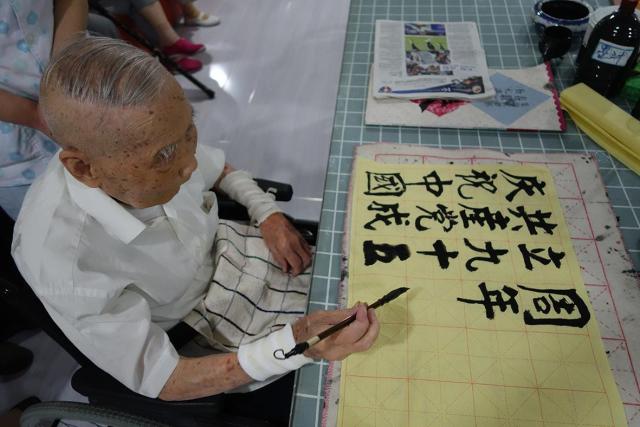 庆祝中國
共産黨成
立九十五
周年